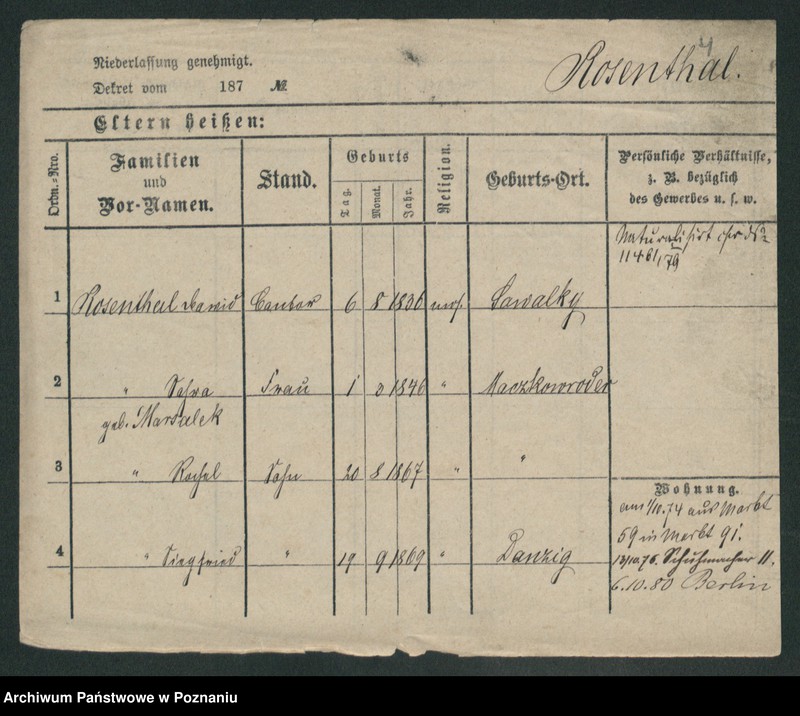 4
Rosenthal.
Niederlassung genehmigt.
Dekret vom 187 №.
Eltern heißen:
Ordn.-Nro.
Familien und Vor-Namen.
Stand.
Geburts
Tag.
Monat.
Jahr.
Religion.
Geburts-Ort.
Persönliche Verhältnisse,
z. B. bezüglich
des Gewerbes u. s. w.
Naturalisirt
1 Rosenthal David Cantor 6 8 1836 mos. Suwalky
2 " Frau 1 1846 "
geb. Marsalek
3 " Sohn 20 8 1867 " "
4 " Siegfried " 19 9 1869 " Danzig
Wohnung.
am 1/10.74 aus Markt
59 in Markt 91.
13/10.76. Schuhmacher 11.
6.10.80 Berlin
Archiwum Państwowe w Poznaniu